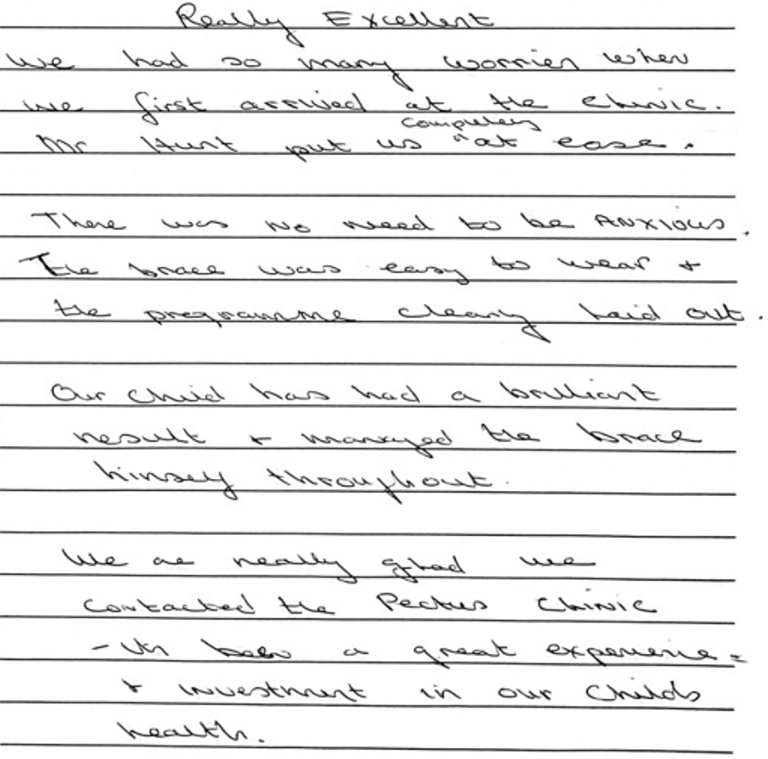 Really Excellent
We had so many worries when
we first arrived at the Clinic.
Mr Hunt put us completely at ease.
There was no need to be ANXIOUS.
The brace was easy to wear +
the programme clearly laid out.
Our child has had a brilliant
result + managed the brace
himself throughout.
We are really glad we
contacted the Pectus Clinic
- it's been a great experience
+ investment in our childs
health.